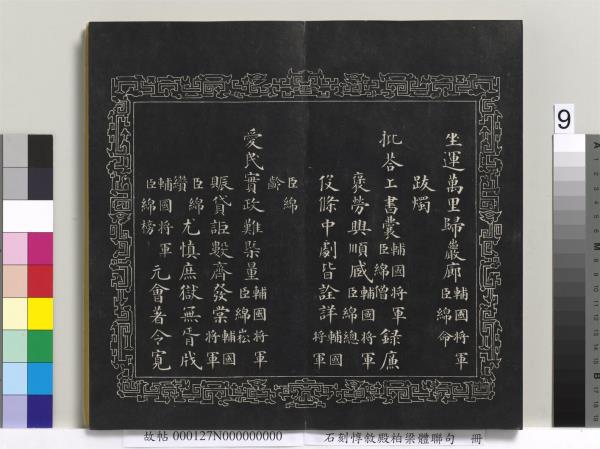 坐運萬里歸巖廊輔國將軍臣綿命
跋燭
批荅工書囊輔國將軍臣綿僧錄廉
褒勞與順感輔國將軍臣綿總
役條中劇皆詮詳輔國將軍
臣綿齡
愛民實政難槩量輔國將軍臣綿崧
賑貸詎數齊發棠輔國將軍
臣綿續尤慎庶獄無胥戕
輔國將軍臣綿榜元會著令寬
故帖 000127N000000000 石刻惇敘殿柏梁體聯句 冊
9
A
M
B